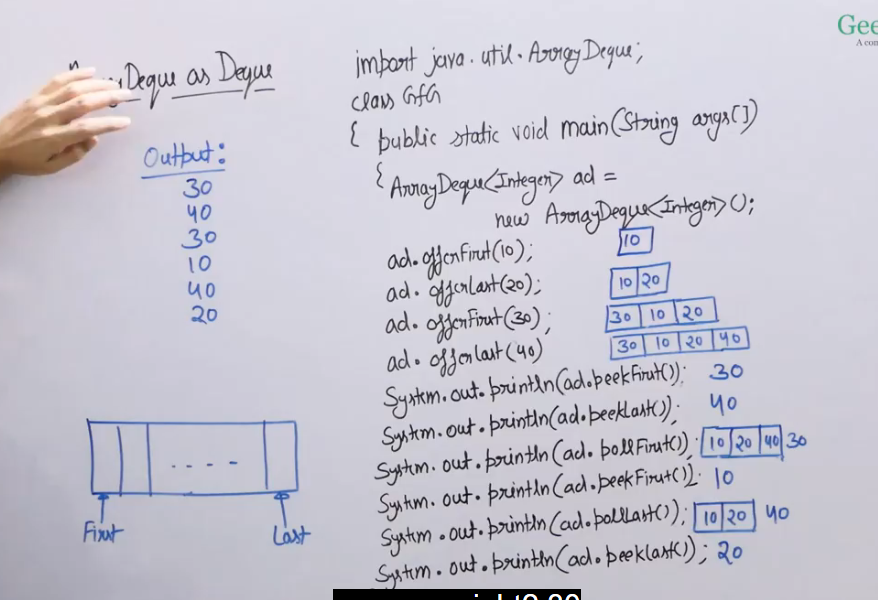 Deque as Deque
Output:
30
40
30
10
40
20
First
Last
Gee
A com
import java.util.ArrayDeque;
class GfG
{ public static void main(String args[])
{ ArrayDeque<Integer> ad =
new ArrayDeque<Integer>();
ad.offerFirst(10); 10
ad.offerLast(20); 10 20
ad.offerFirst(30); 30 10 20
ad.offerLast(40) 30 10 20 40
System.out.println(ad.peekFirst()); 30
System.out.println(ad.peekLast()); 40
System.out.println(ad.pollFirst()); 10 20 40 30
System.out.println(ad.peekFirst()); 10
System.out.println(ad.pollLast()); 10 20 40
System.out.println(ad.peekLast()); 20